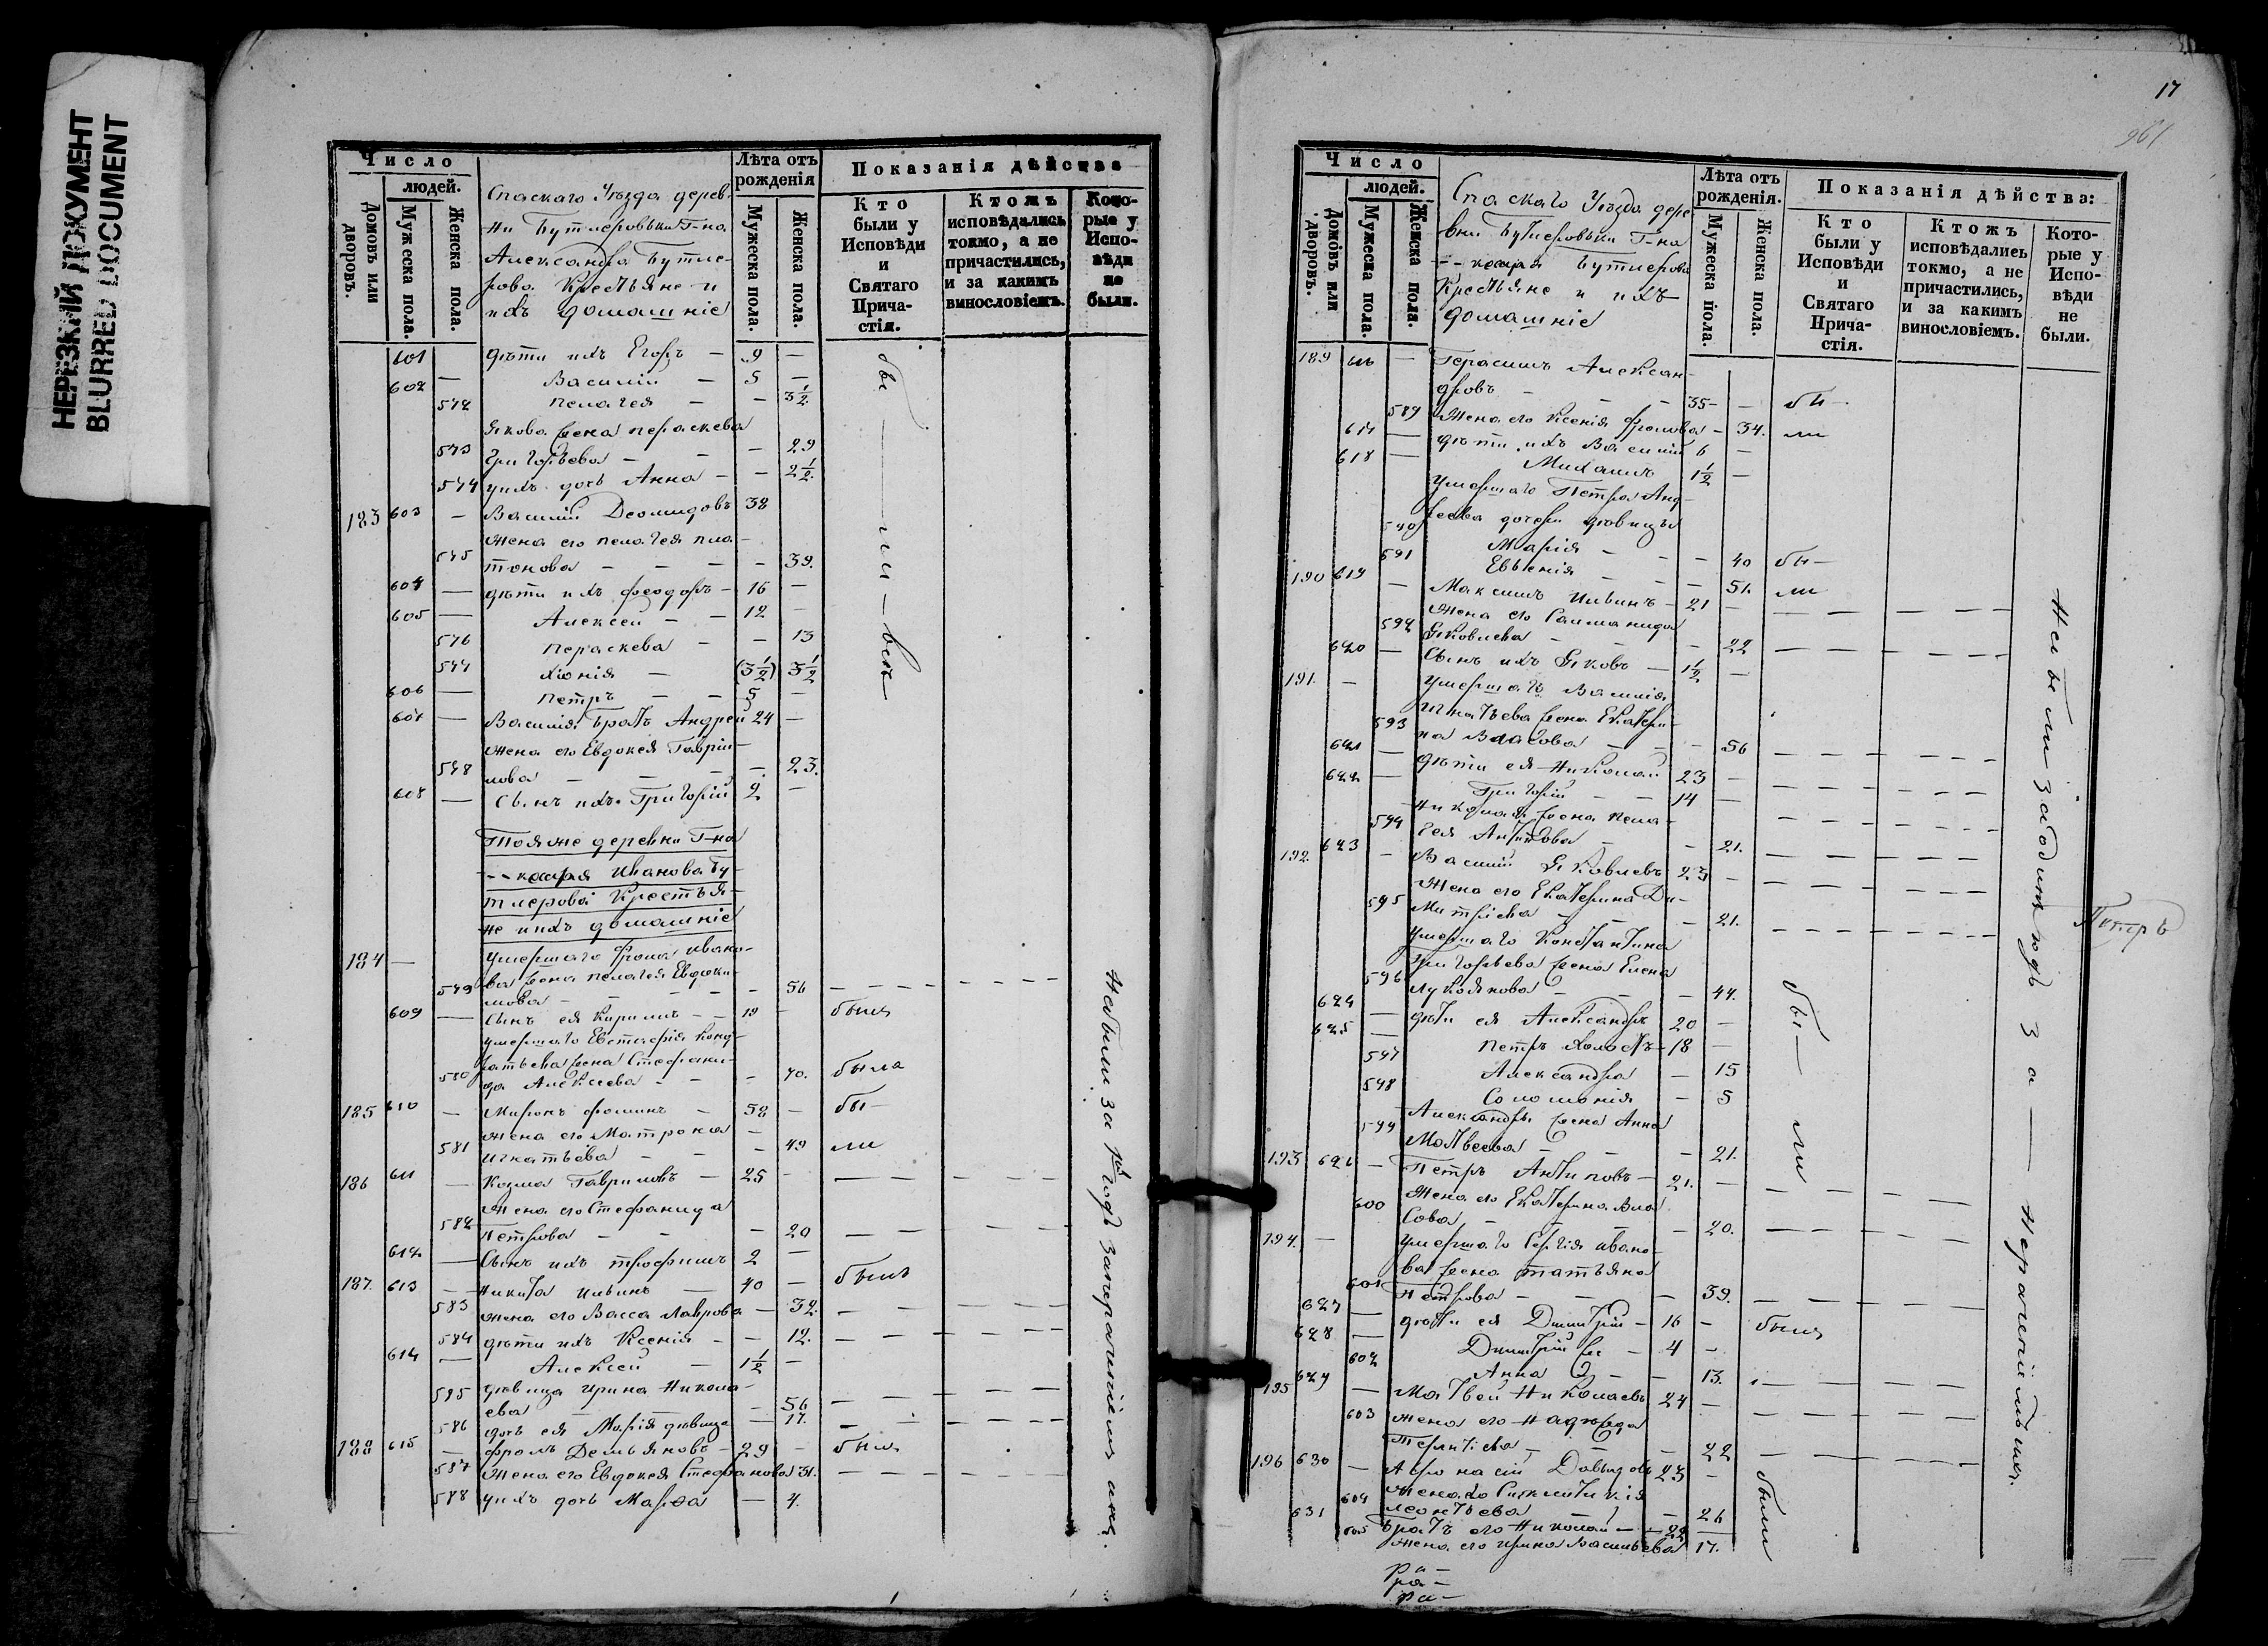 НЕРЕЗКИЙ ДОКУМЕНТ
BLURRED DOCUMENT
Число
людей.
Домовъ или дворовъ.
Мужеска пола.
Женска пола.
Спаскаго Уѣзда дерев-
ни Бутлеровки Г-на
Александра Бутле-
рова Крестьяне и
ихъ домашніе
Лѣта отъ рожденія
Мужеска пола.
Женска пола.
Показанія дѣйства
Кто были у Исповѣди и Святаго Прича-стія.
Ктожъ исповѣдались токмо, а не причастились, и за какимъ винословіемъ.
Кото-рые у Испо-вѣди не были.
601 дѣти ихъ Егоръ — 9 —
602 — Василій — 5 —
572 Пелагея — — 3 1/2
Якова жена Параскева
573 Григорьева — — — 29
574 у нихъ дочь Анна — — 2 1/2
183 603 — Василій Деомидовъ 38
жена его Пелагея Пла-
575 тонова — — — — 39.
604 — дѣти ихъ Феодоръ — 16 —
605 — Алексей — — 12 —
576 Параскева — — 13
577 Хіонія — (3 1/2) 3 1/2
606 — Петръ — — 5 —
607 — Василія братъ Андрей 24 —
жена его Евдокея Гаврі-
578 лова — — — — 23.
608 — Сынъ ихъ Григорій 2 —
бы — ли — вст
Тояже деревни Г-на
Иванова Бу-
тлерова Крестья-
не и ихъ домашніе
184 — умершаго Фрола Ивано-
ва жена Пелагея Евдоки-
579 мова — — — — 56
609 — Сынъ ея Кирилъ — — 19 — былъ
умершаго Евстафія Конд-
ратьева жена Стефани-
580 да Алексеева — — — 70. была
185 610 — Миронъ Фоминъ — 58 — бы-
жена его Матрона —
581 Игнатьева — — — 49 ли
186 611 — Козма Гавриловъ — 25 —
жена его Стефанида
582 Петрова — — — 20
612 — Сынъ ихъ Трофимъ 2 —
187. 613 — Никита Ильинъ — 40 — былъ
583 жена его Васса Лаврова — 32.
584 дѣти ихъ Ксенія — — 12.
614 — Алексей — 1 1/2 —
585 дѣвица Ирина Никола-
ева — — 56
586 дочь ея Марія дѣвица — 17.
188 615 — Фролъ Демьяновъ — 29 — былъ
587 жена его Евдокея Стефанова 31.
588 у нихъ дочь Марѳа — 4.
небыли за годъ занераченіемъ
17
961
Число
людей.
Домовъ или дворовъ.
Мужеска пола.
Женска пола.
Спаскаго Уѣзда дере
вни Бутлеровки Г-на
Бутлерова
Крестьяне и ихъ
домашніе
Лѣта отъ рожденія.
Мужеска пола.
Женска пола.
Показанія дѣйства:
Кто были у Исповѣди и Святаго Прича-стія.
Ктожъ исповѣдались токмо, а не причастились, и за какимъ винословіемъ.
Кото-рые у Испо-вѣди не были.
189 616 — Герасимъ Алексан-
дровъ — — — 35 — — бы-
589 жена его Ксенія Фролова — 34. ли
617 — дѣти ихъ Василій 6 —
618 — Михаилъ 1 1/2 —
умершаго Петра Анд-
реева дочери дѣвицы
590 Марія — — — 40 бы-
591 Евгенія — — — 51. ли
190 619 — Максимъ Ильинъ — 21 —
жена его Саламанида
592 Яковлева — — — 22
620 — Сынъ ихъ Яковъ — 1 1/2 —
191. — умершаго Василія
Игнатьева жена Екатери-
593 на Власова — — — 56
621 — дѣти ея Николай 23 —
622 — Григорій — — 14 —
Николая жена Пела-
594 гея Антипова — — 21.
192. 623 — Василій Яковлевъ 23 —
жена его Екатерина Ди-
595 митріева — — — 21.
умершаго Константина
Григорьева жена Елена
596 Лукоянова — — — 44.
624 — дѣти ея Александръ 20 —
625 — Петръ холостъ — 18 —
597 Александра — 15
598 Соломонія — 5
Александра жена Анна
599 Матвеева — — — 21.
бы — ли
193 626 — Петръ Антиповъ — 21. —
жена его Екатерина Вла
600 сова — — — 20.
194. — умершаго Сергія Ивано-
ва жена Татьяна
601 Петрова — — — 39.
627 — дѣти ея Димитрій — 16 — былъ
628 — Димитрій же — 4 —
602 Анна — — 13.
195 629 — Матвей Николаевъ 24 —
603 жена его Надѣжда
Терентіева — — — 22
196 630 — Афонасій Давыдовъ 23 —
604 жена его Синклитикія
Леонтьева — — 26
631 братъ его Николай — — 22 —
605 жена его Ирина Васильева 17.
были
Небыли за одинъ годъ за — Нераченіемъ
Питеръ